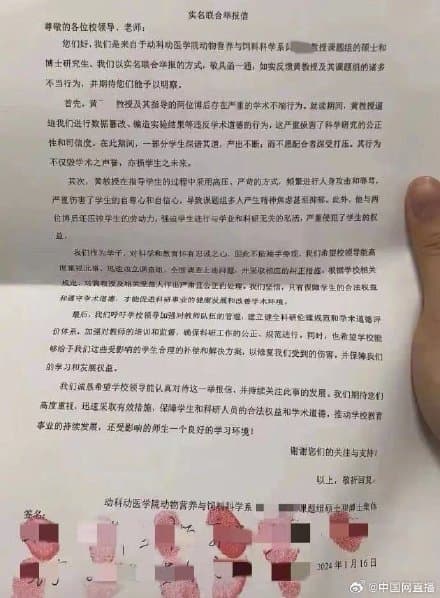 实名联合举报信
尊敬的各位校领导、老师:
您们好,我们是来自于动科动医学院动物营养与饲料科学系 教授课题组的硕士和
博士研究生。我们以实名联合举报的方式,敬具函一通,如实反馈黄教授及其课题组的诸多
不当行为,并期待您们能予以明察。
首先,黄 教授及其指导的两位博后存在严重的学术不端行为。就读期间,黄教授逼
迫我们进行数据篡改、编造实验结果等违反学术道德的行为,这严重侵害了科学研究的公正
性和可信度。在此期间,一部分学生深谙其道,产出不断;而不愿配合者深受打压。其行为
不仅毁学术之声誉,亦损学生之未来。
其次,黄教授在指导学生的过程中采用高压、严苛的方式,频繁进行人身攻击和辱骂,
严重伤害了学生的自尊心和自信心,导致课题组多人产生精神焦虑甚至抑郁。此外,他与两
位博后还压榨学生的劳动力,强迫学生进行与学业和科研无关的私活,严重侵犯了学生的权
益。
我们作为学子,对科学和教育怀有忠诚之心,因此不能袖手旁观。我们希望校领导能高
度重视此事,迅速成立调查组,全面调查上述问题,并采取相应的纠正措施。根据学校相关
规定,对黄教授及相关责任人作出严肃且公正的处理。我们坚信,只有保障学生的合法权益
和遵守学术道德,才能促进科研事业的健康发展和改善学术环境。
最后,我们呼吁学校领导加强对教师队伍的管理,建立健全科研伦理规范和学术道德评
价体系,加强对教师的培训和监督,确保科研工作的公正、规范进行。同时,也希望学校能
够给予我们这些受影响的学生合理的补偿和解决方案,以修复我们受到的伤害,并保障我们
的学习和发展权益。
我们诚恳希望学校领导能认真对待这一举报信,并持续关注此事的发展。我们期待您们
高度重视,迅速采取有效措施,保障学生和科研人员的合法权益和学术道德,推动学校教育
事业的持续发展,还受影响的师生一个良好的学习环境!
谢谢您们的关注与支持!
以上,敬祈回复。
动科动医学院动物营养与饲料科学系 课题组硕士和博士集体
签名:
2024年1月16日
@中国网直播